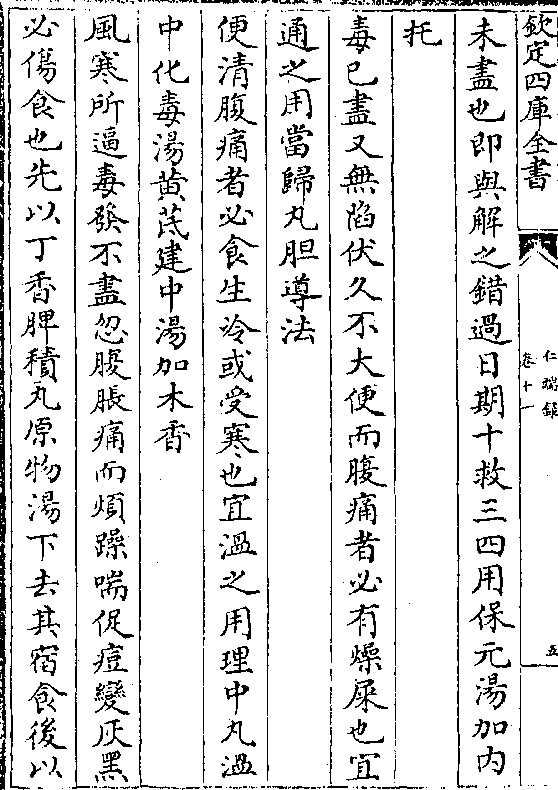 欽定四庫全書
仁端錄
卷十一
五
未盡也即與解之錯過日期十救三四用保元湯加内
托
毒已盡又無陷伏久不大便而腹痛者必有燥屎也宜
通之用當歸丸胆導法
便清腹痛者必食生冷或受寒也宜温之用理中丸温
中化毒湯黄芪建中湯加木香
風寒所逼毒發不盡忽腹脹痛而煩躁喘促痘變灰黑
必傷食也先以丁香脾積丸原物湯下去其宿食後以